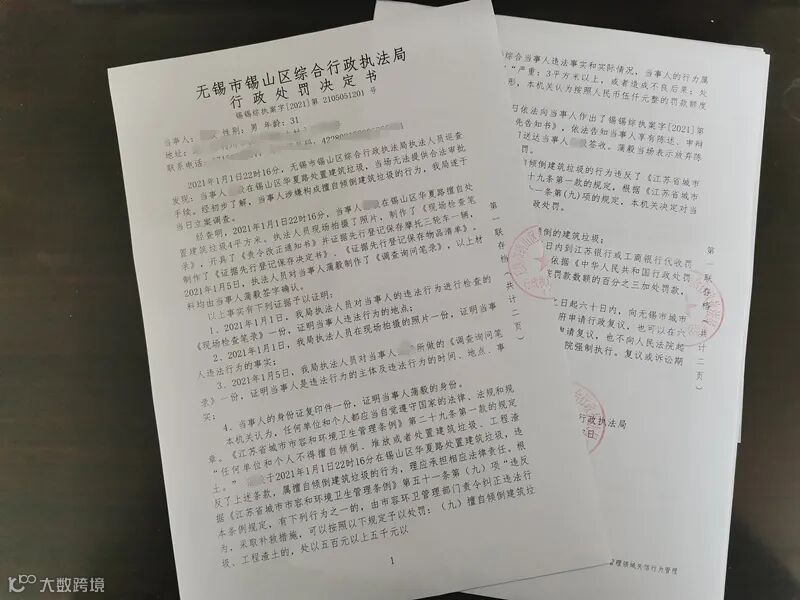 无锡市锡山区综合行政执法局
行政处罚决定书
锡锡综执案字[2021]第 2105051201 号
当事人: 性别:男 年龄:31
地址:
联系电话: 号码:
2021年1月1日22时16分,无锡市锡山区综合行政执法局执法人员巡查
发现:当事人 在锡山区华夏路处置建筑垃圾,当场无法提供合法审批
手续。经初步了解,当事人涉嫌构成擅自倾倒建筑垃圾的行为,我局遂于
当日立案调查。
经查明,2021年1月1日22时16分,当事人 在锡山区华夏路擅自处
置建筑垃圾4平方米。执法人员现场拍摄了照片,制作了《现场检查笔
录》,开具了《责令改正通知书》并证据先行登记保存摩托三轮车一辆,
制作了《证据先行登记保存决定书》、《证据先行登记保存物品清单》。
2021年1月5日,执法人员对当事人蒲毅制作了《调查询问笔录》,以上材
料均由当事人蒲毅签字确认。
以上事实有下列证据予以证明:
1、2021年1月1日,我局执法人员对当事人的违法行为进行检查的
《现场检查笔录》一份,证明当事人违法行为的地点;
2、2021年1月1日,我局执法人员在现场拍摄的照片一份,证明当事
人违法行为的事实;
3、2021年1月5日,我局执法人员对当事人 所做的《调查询问笔
录》一份,证明当事人是违法行为的主体及违法行为的时间、地点、事
实;
4、当事人的身份证复印件一份,证明当事人蒲毅的身份。
本机关认为,任何单位和个人都应当自觉遵守国家的法律、法规和规
章。《江苏省城市市容和环境卫生管理条例》第二十九条第一款的规定
“任何单位和个人不得擅自倾倒、堆放或者处置建筑垃圾、工程渣
土。” 于2021年1月1日22时16分在锡山区华夏路处置建筑垃圾,违
反了上述条款,属擅自倾倒建筑垃圾的行为,理应承担相应法律责任。根
据《江苏省城市市容和环境卫生管理条例》第五十一条第(九)项“违反
本条例规定,有下列行为之一的,由市容环卫管理部门责令纠正违法行
为、采取补救措施,可以按照以下规定予以处罚:(九)擅自倾倒建筑垃
圾、工程渣土的,处以五百元以上五千元以
1
第一联存档(共计二页)
综合当事人违法事实和实际情况,当事人的行为属
“严重:3平方米以上,或者造成不良后果;处
形,本机关认为按照人民币伍仟元整的罚款额度
依法向当事人作出了锡锡综执案字[2021]第
先告知书》,依法告知当事人享有陈述、申辩
送达当事人 签收。蒲毅当场表示放弃陈
倾倒建筑垃圾的行为违反了《江苏省城市
十九条第一款的规定。根据《江苏省城市
一条第(九)项的规定,本机关决定对当
政处罚。
倒的建筑垃圾;
日内到江苏银行或工商银行代收罚
依据《中华人民共和国行政处罚
罚款数额的百分之三加处罚款。
之日起六十日内,向无锡市城市
府申请行政复议,也可以在六
请复议,也不向人民法院起
院强制执行。复议或诉讼期
行政执法局
日
第一联存档(共计二页)
理领域失信行为管理
大数跨境